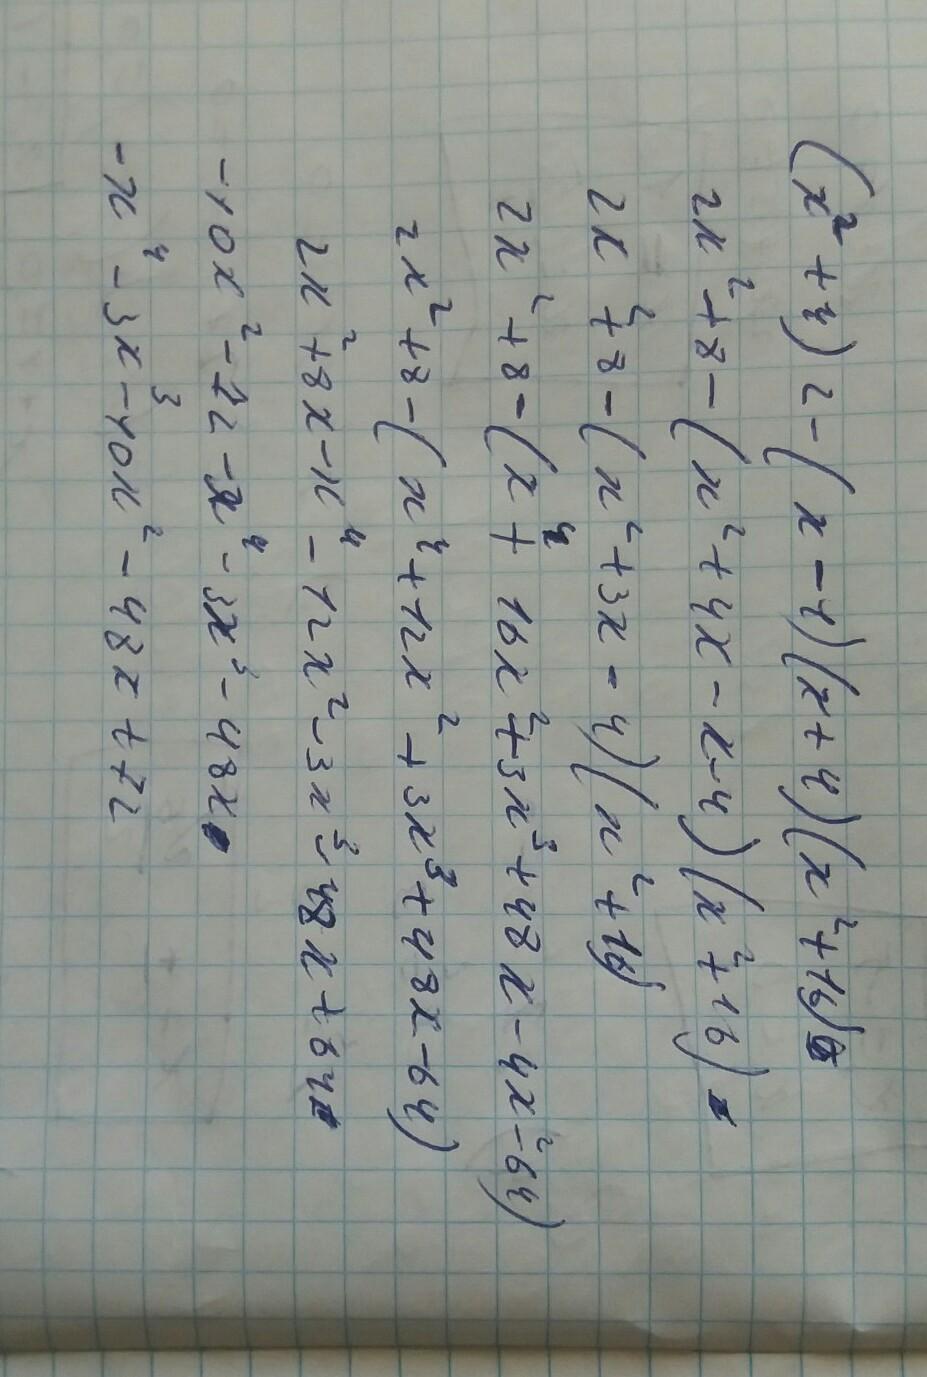 (x²+4)2-(x-4)(x+4)(x²+16)
2x²+8-(x²+4x-x-4)(x²+16)
2x²+8-(x²+3x-4)(x²+16)
2x²+8-(x⁴+16x²+3x³+48x-4x²-64)
2x²+8-(x⁴+12x²+3x³+48x-64)
2x²+8x-x⁴-12x²-3x³-48x+64
-10x²-72-x⁴-3x³-48x
-x⁴-3x³-10x²-48x+72